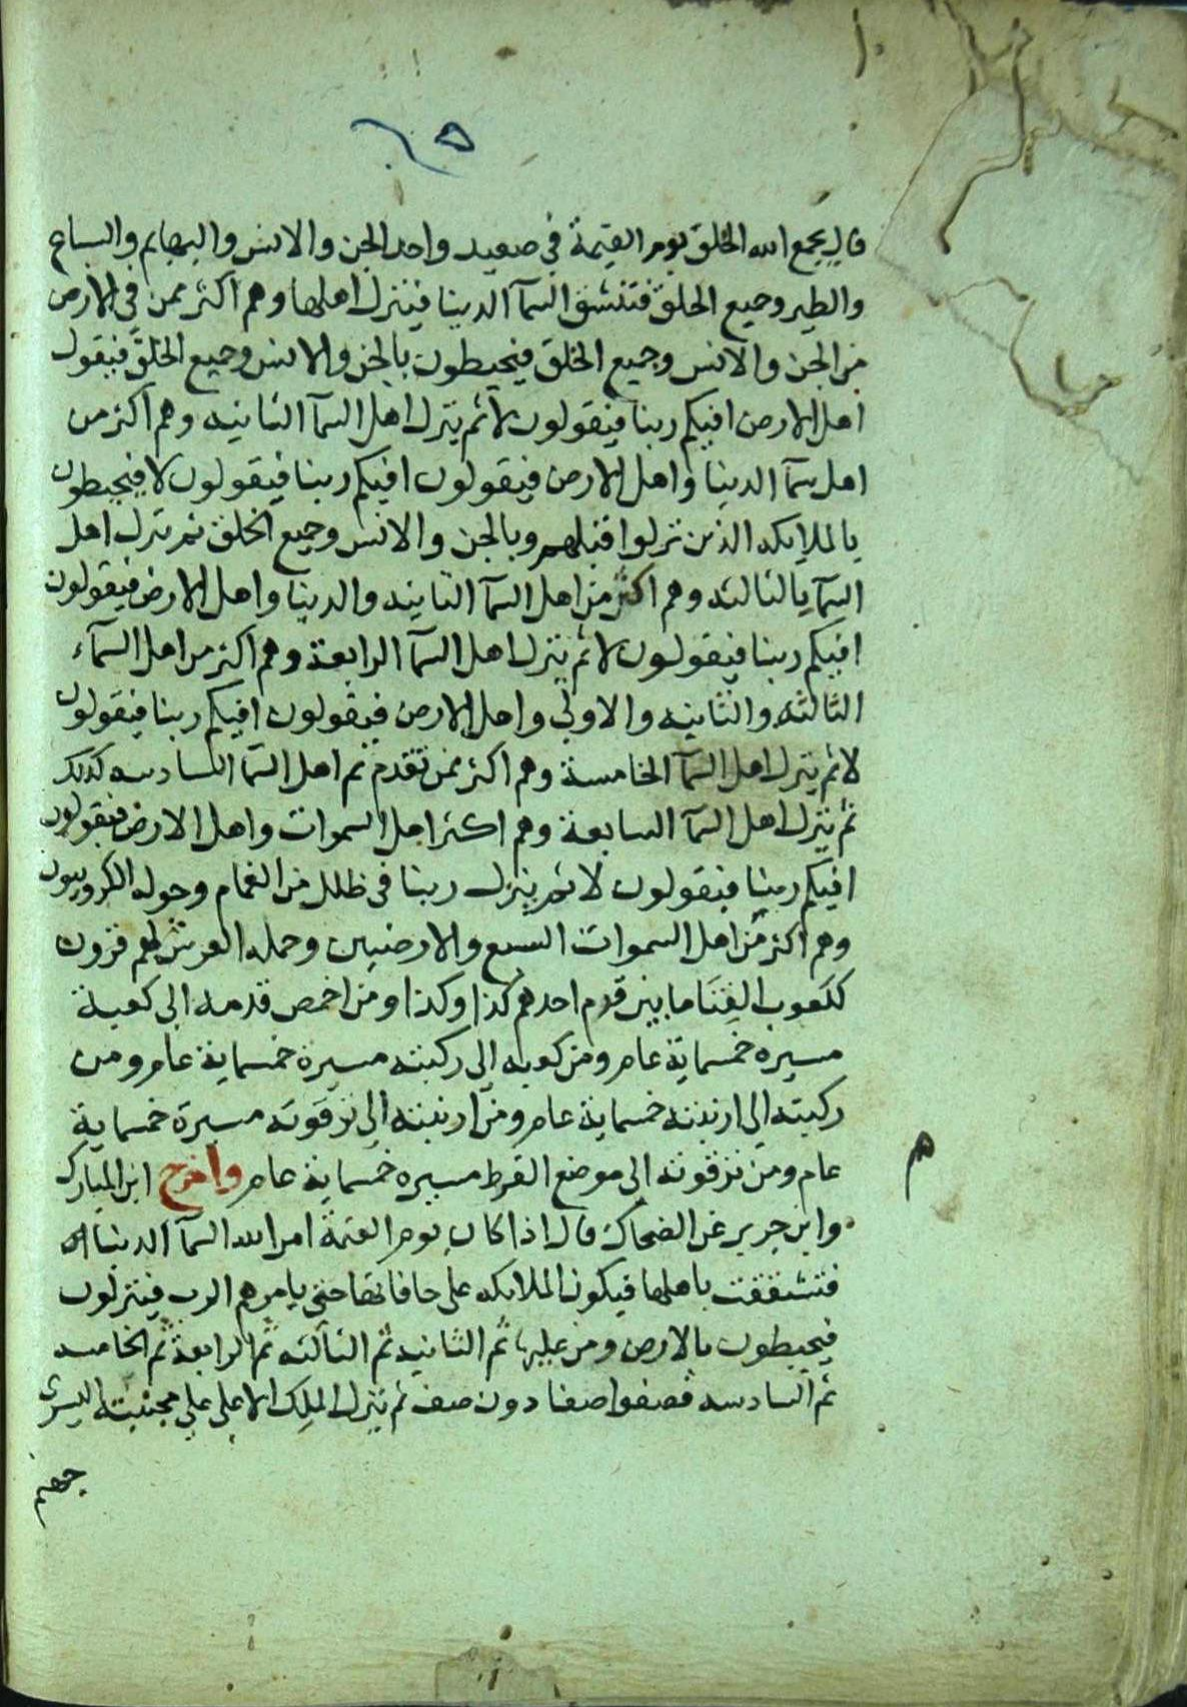 ٢٥
قال يجمع الله الخلق يوم القيمة في صعيد واحد الجن والانس والبهايم والسباع
والطير وجميع الخلق فتنشق السمآ الدنيا فينزل اهلها وهم اكثر ممن في الارض
من الجن والانس وجميع الخلق فيحيطون بالجن والانس وجميع الخلق فيقول
اهل الارض افيكم ربنا فيقولون لا ثم ينزل اهل السمآ الثانيه وهم اكثر من
اهل سمآ الدنيا واهل الارض فيقولون افيكم ربنا فيقولون لا فيحيطون
بالملايكه الذين نزلوا قبلهم وبالجن والانس وجميع الخلق ثم ينزل اهل
السمآ الثالثه وهم اكثر من اهل السمآ الثانيه والدنيا واهل الارض فيقولون
افيكم ربنا فيقولون لا ثم ينزل اهل السمآ الرابعة وهم اكثر من اهل السمآء
الثالثه والثانيه والاولي واهل الارض فيقولون افيكم ربنا فيقولون
لا ثم ينزل اهل السمآ الخامسة وهم اكثر ممن تقدم ثم اهل السمآ السادسه كذلك
ثم ينزل اهل السمآ السابعة وهم اكثر اهل السموات واهل الارض فيقولون
افيكم ربنا فيقولون لا ثم ينزل ربنا في ظلل من الغمام وحوله الكروبيون
وهم اكثر من اهل السموات السبع والارضين وحمله العرش لهم قرون
ككعوب القنا ما بين قدم احدهم كذا وكذا ومن اخمص قدمه الي كعبة
مسيره خمسماية عام ومن كعبه الي ركبته مسيرة خمسماية عام ومن
ركبته الي ارنبته خمسماية عام ومن ارنبته الي ترقوته مسيرة خمسماية
عام ومن ترقوته الي موضع القرط مسيره خمسماية عام واخرج ابن المبارك
وابن جرير عن الضحاك قال اذا كان يوم القيمة امر الله السمآ الدنيا
فتشققت باهلها فيكون الملايكه علي حافاتها حتي يامرهم الرب فينزلون
فيحيطون بالارض ومن عليها ثم الثانيه ثم الثالثه ثم الرابعة ثم الخامسه
ثم السادسه فصفوا صفا دون صف ثم ينزل الملك الاعلي علي مجنبته اليسري
جهنم